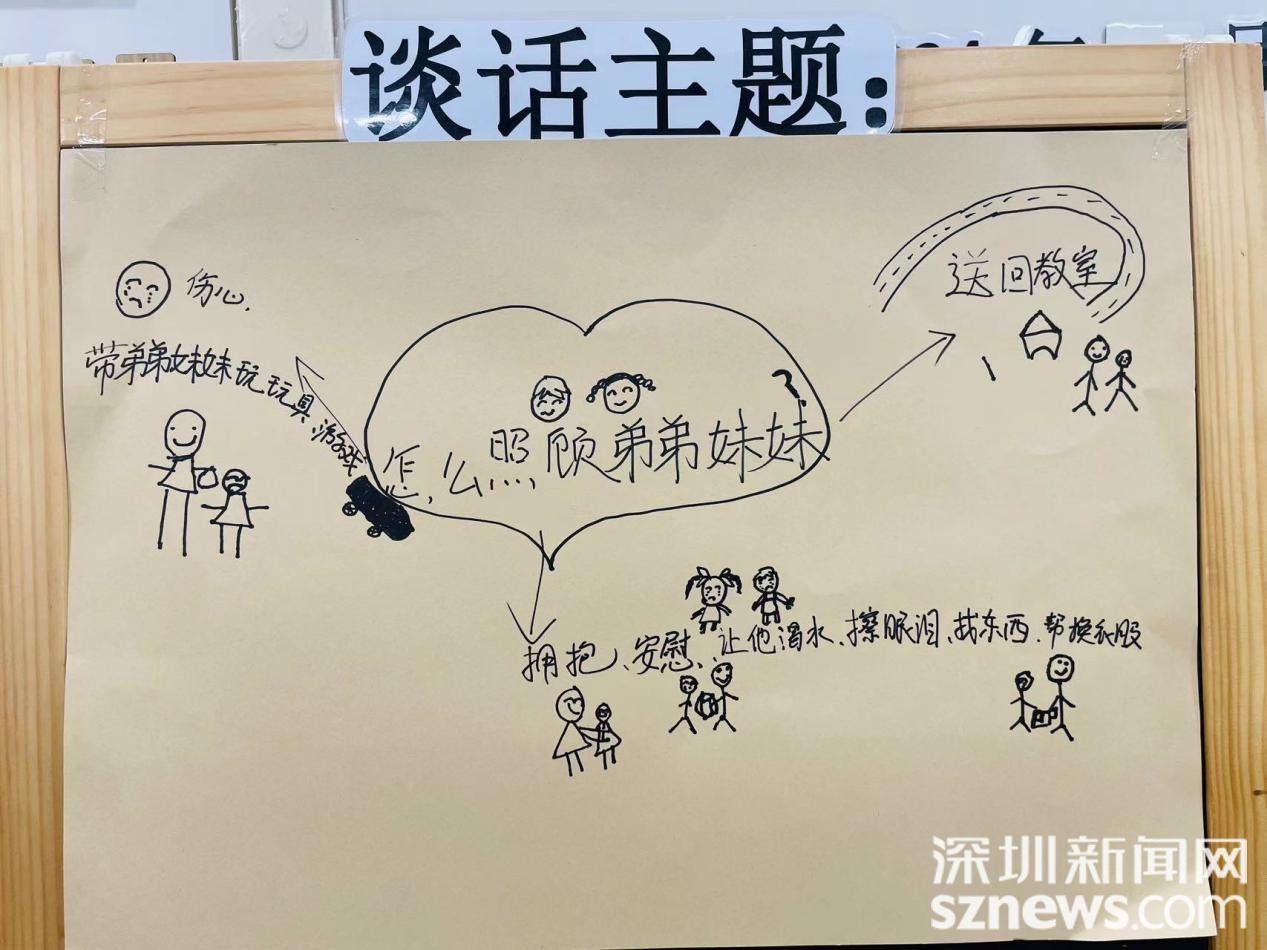 谈话主题:
伤心.
带弟弟妹妹玩玩具、游戏
送回教室
怎么照顾弟弟妹妹?
拥抱、安慰、让他渴水、擦眼泪、找东西、帮换衣服
深圳新闻网
sznews.com